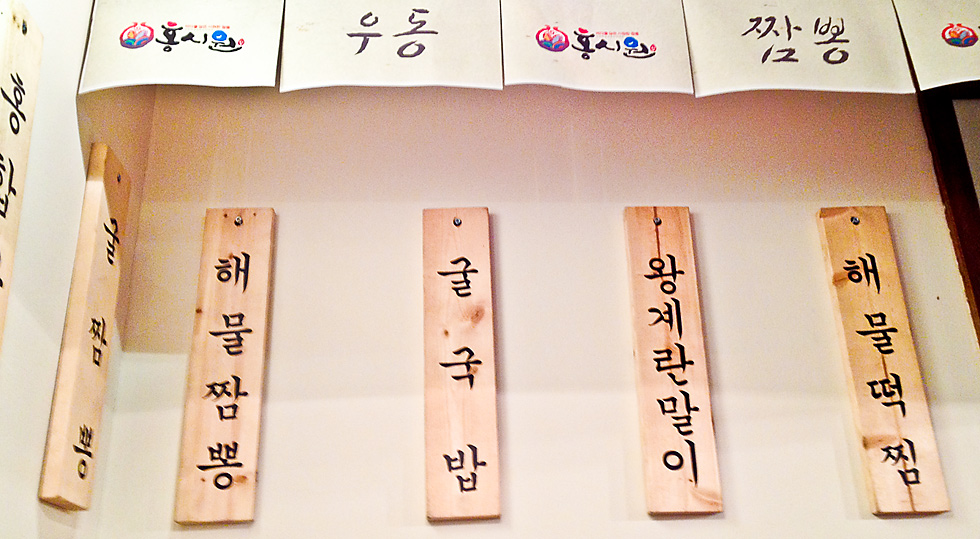 홍시원
우동
홍시원
짬뽕
짬뽕
해물짬뽕
굴국밥
왕계란말이
해물떡찜